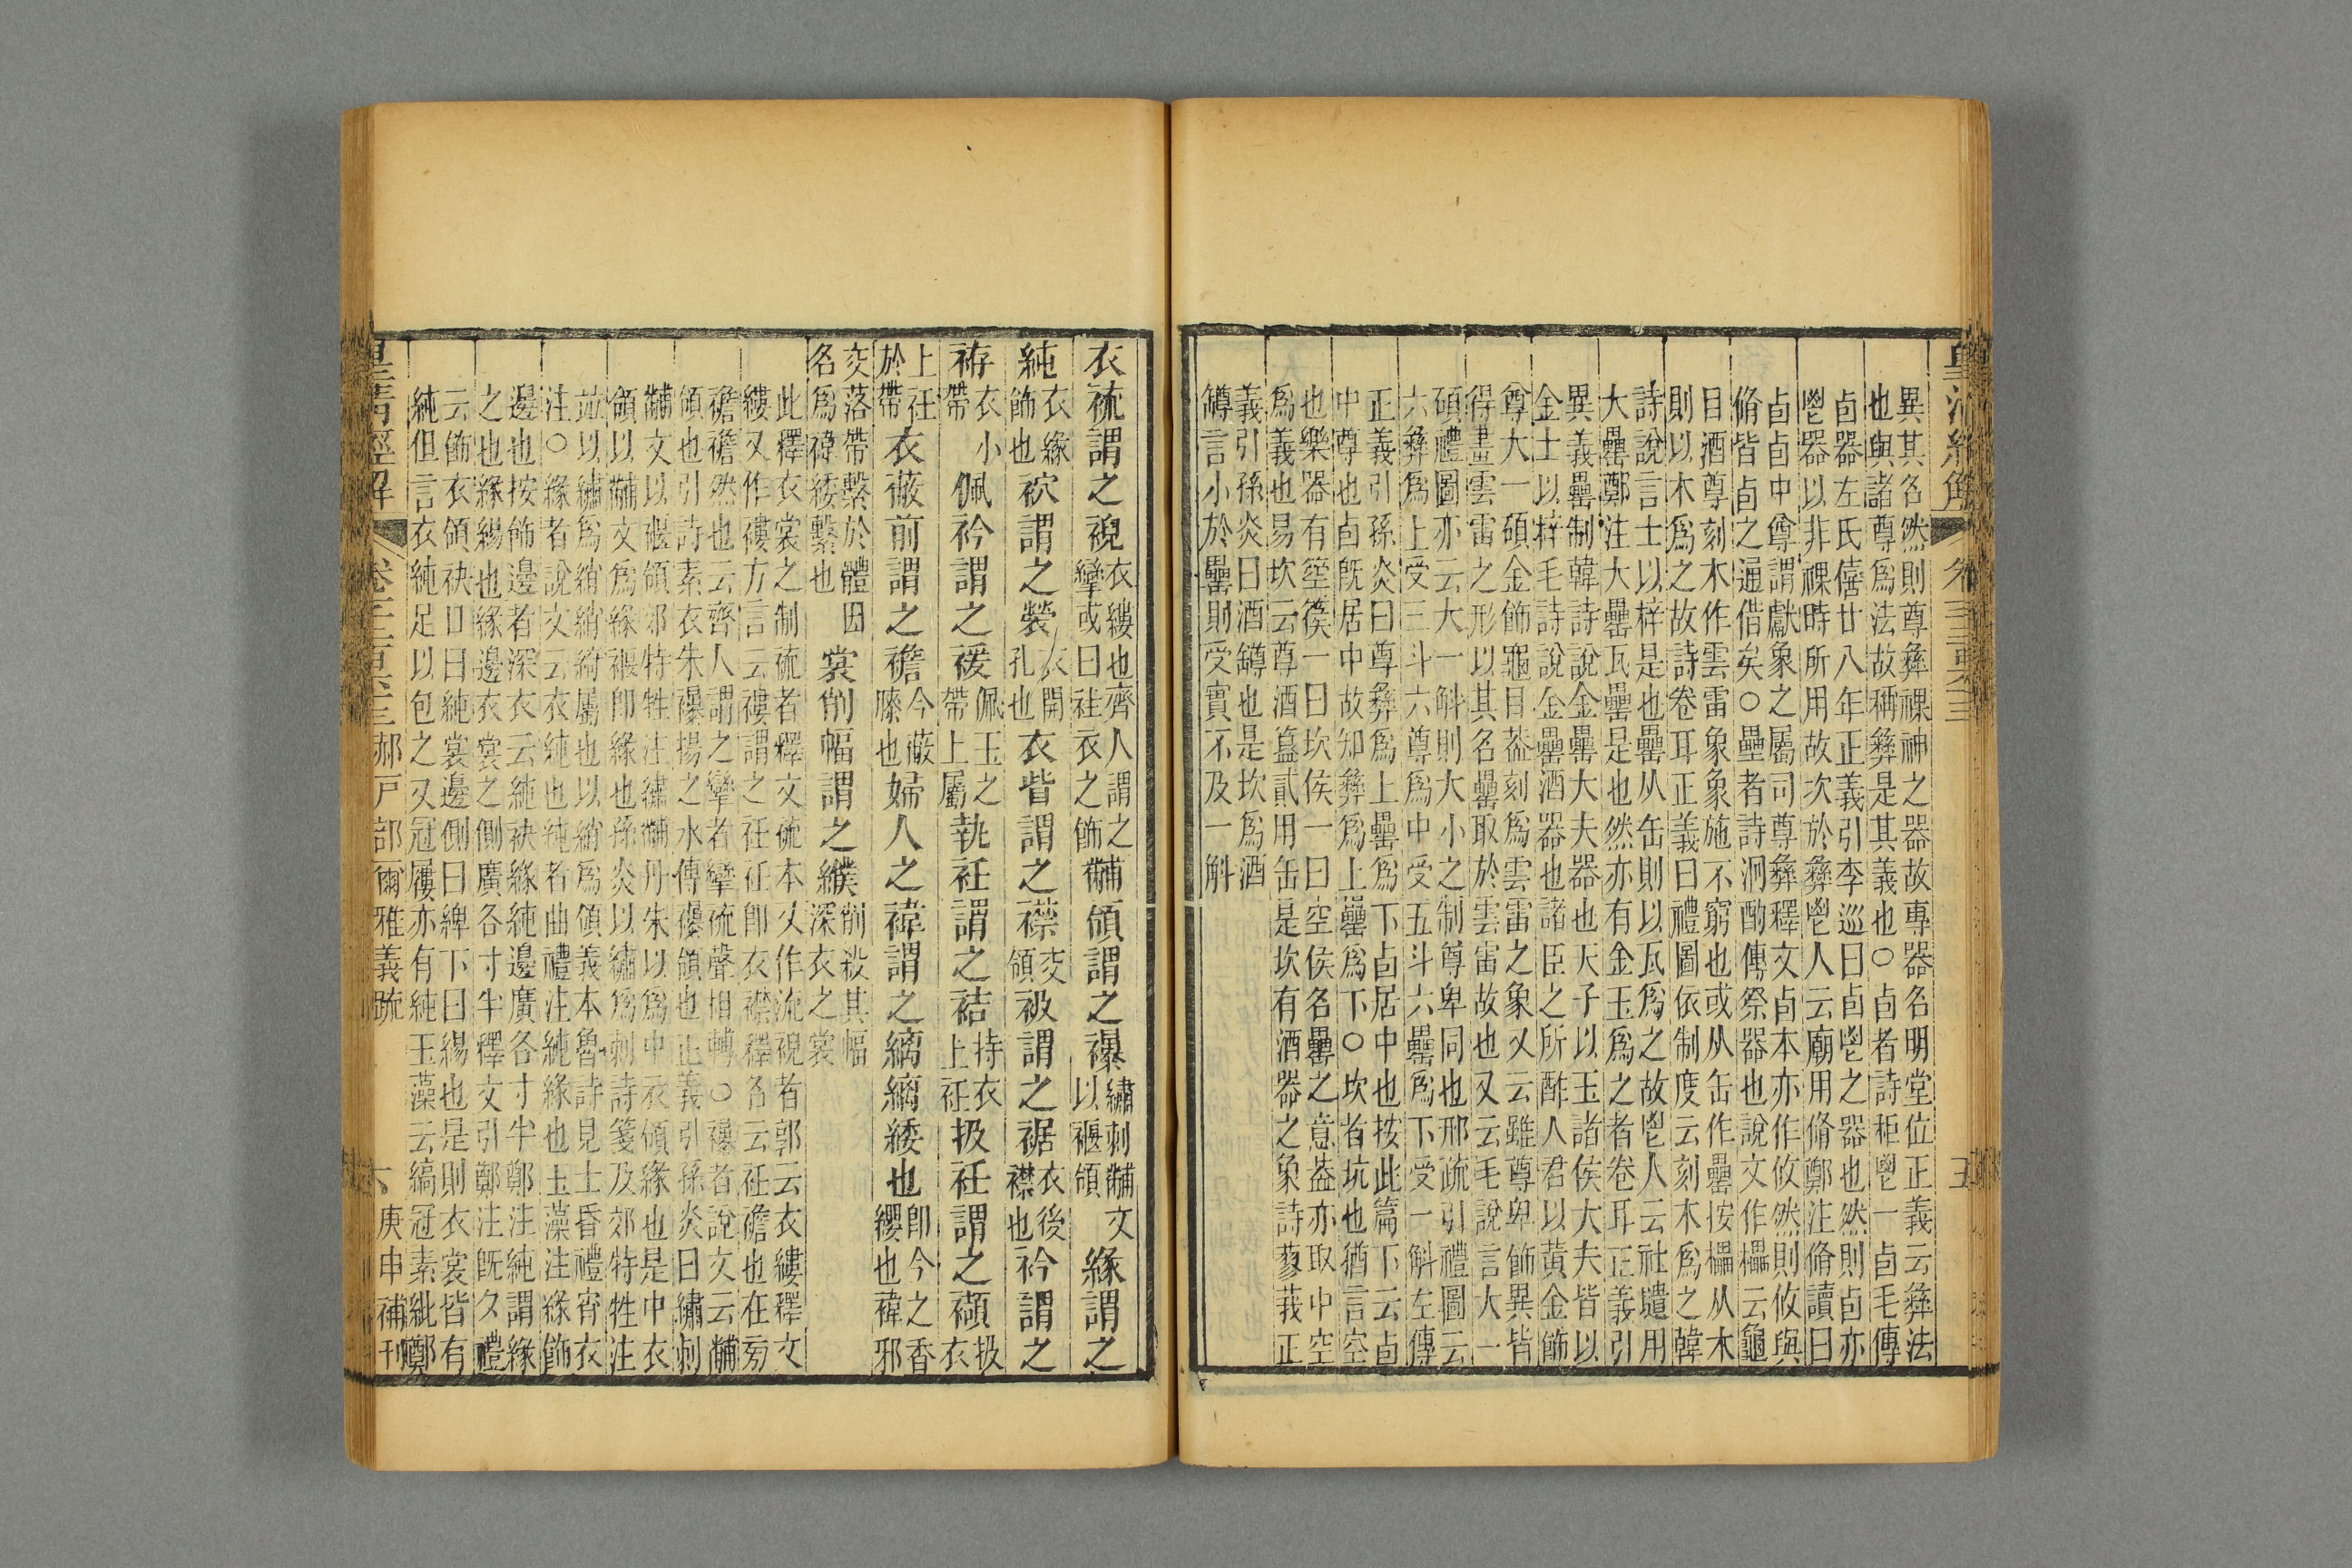 異其名然則尊彝祼神之器故專器名明堂位正義云彝法
也與諸尊爲法故稱彝是其義也○卣者詩秬鬯一卣毛傳
卣器左氏僖廿八年正義引李巡曰卣鬯之器也然則卣亦
鬯器以非祼時所用故次於彝鬯人云廟用脩鄭注脩讀曰
卣卣中尊謂獻象之屬司尊彝釋文卣本亦作攸然則攸與
脩皆卣之通借矣○罍者詩泂酌傳祭器也說文作櫑云龜
目酒尊刻木作雲雷象象施不窮也或从缶作罍按櫑从木
則以木爲之故詩卷耳正義曰禮圖依制度云刻木爲之韓
詩說言士以梓是也罍从缶則以瓦爲之故鬯人云社壝用
大罍鄭注大罍瓦罍是也然亦有金玉爲之者卷耳正義引
異義罍制韓詩說金罍大夫器也天子以玉諸侯大夫皆以
金士以梓毛詩說金罍酒器也諸臣之所酢人君以黃金飾
尊大一碩金飾龜目蓋刻爲雲雷之象又云雖尊卑飾異皆
得畫雲雷之形以其名罍取於雲雷故也又云毛說言大一
碩禮圖亦云大一斛則大小之制尊卑同也邢疏引禮圖云
六彝爲上受三斗六尊爲中受五斗六罍爲下受一斛左傳
正義引孫炎曰尊彝爲上罍爲下卣居中也按此篇下云卣
中尊也卣旣居中故知彝爲上罍爲下○坎者坑也猶言空
也樂器有箜篌一曰坎侯一曰空侯名罍之意蓋亦取中空
爲義也易坎云尊酒簋貳用缶是坎有酒器之象詩蓼莪正
義引孫炎曰酒罇也是坎爲酒
罇言小於罍則受實不及一斛
衣裗謂之祝衣縷也齊人謂之攣或曰袿衣之飾黼領謂之襮繡刺黼文以褗領緣謂之
純衣緣飾也袕謂之褮衣開孔也衣眥謂之襟交領衱謂之裾衣後襟也衿謂之
袸衣小帶佩衿謂之褑佩玉之帶上屬執衽謂之袺持衣上衽扱衽謂之襭扱衣
上衽於帶衣蔽前謂之襜今蔽膝也婦人之褘謂之縭縭緌也即今之香纓也褘邪
交落帶繫於體因名爲褘緌繫也裳削幅謂之纀削殺其幅深衣之裳
此釋衣裳之制裗者釋文裗本又作流祝者郭云衣縷釋文
縷又作褸方言云褸謂之衽衽卽衣襟釋名云衽襜也在旁
襜襜然也云齊人謂之攣者攣裗聲相轉○襮者說文云黼
領也引詩素衣朱襮揚之水傳襮領也正義引孫炎曰繡刺
黼文以褗領郊特牲注繡黼丹朱以爲中衣領緣也是中衣
領以黼文爲緣褗卽緣也孫炎以繡爲刺詩箋及郊特牲注
竝以繡爲綃綃綺屬也以綃爲領義本魯詩見士昏禮宵衣
注○緣者說文云衣純也純者曲禮注純緣也玉藻注緣飾
邊也按飾邊者深衣云純袂緣純邊廣各寸半鄭注純謂緣
之也緣緆也緣邊衣裳之側廣各寸半釋文引鄭注旣夕禮
云飾衣領袂口曰純裳邊側曰綼下曰緆也是則衣裳皆有
純但言衣純足以包之又冠屨亦有純玉藻云縞冠素紕鄭
皇清經解 郝戶部爾雅義疏 六 庚申補刊